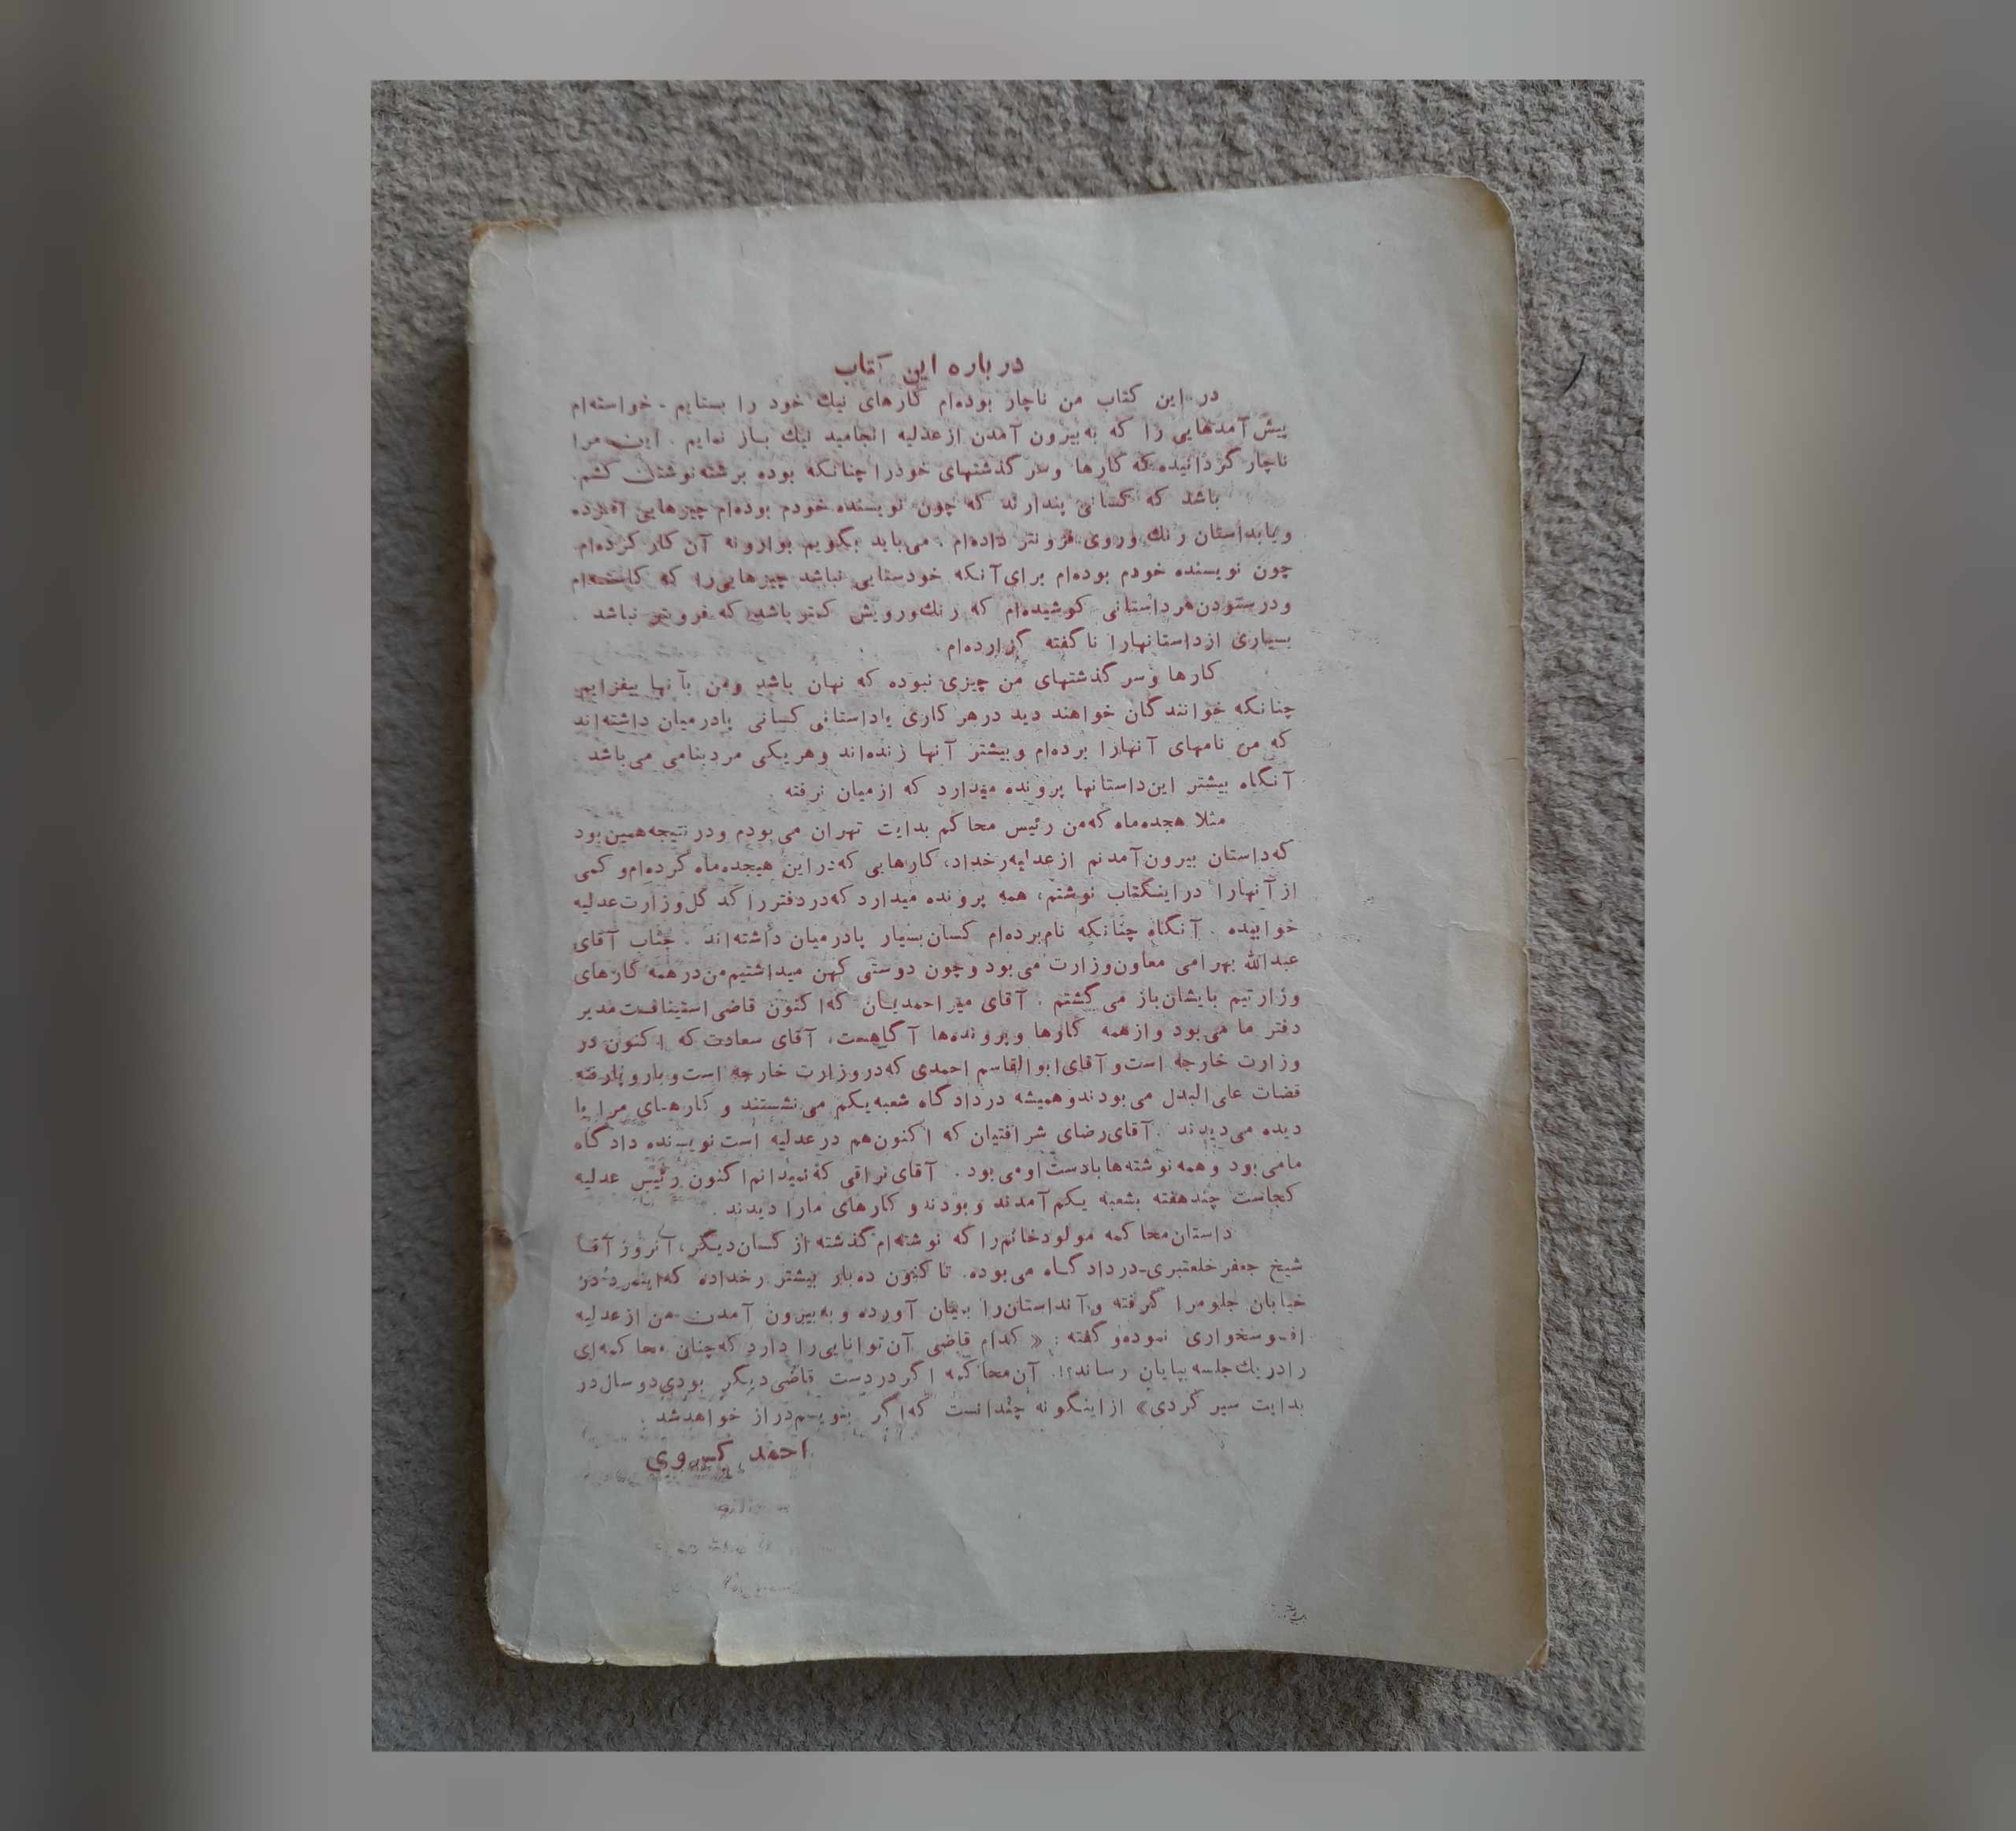 در باره این کتاب
در این کتاب من ناچار بوده‌ام کارهای نیك خود را بستایم - خواسته‌ام
پیش آمدهایی را که به‌بیرون آمدن از عدلیه انجامید نیك باز نمایم . این مرا
ناچار گردانیده که کارها و سر گذشتهای خودرا چنانکه بوده برشته نوشتن کشم.
باشد که کسانی پندارند که چون نویسنده خودم بوده‌ام چیزهایی افزده
و یا بداستان رنك و روی فزونتر داده‌ام . می‌باید بگویم بوارونه آن کار کرده‌ام.
چون نویسنده خودم بوده‌ام برای آنکه خودستایی نباشد چیزهایی‌را که کاسته‌ام
و در ستودن هر داستانی کوشیده‌ام که رنك‌و رویش کمتر باشد که فرونتر نباشد .
بسیاری از داستانهارا ناگفته گزارده‌ام .
کارها و سر گذشتهای من چیزی نبوده که نهان باشد و من بآنها بیفزایم
چنانکه خوانندگان خواهند دید در هر کاری یا داستانی کسانی پادر میان داشته‌اند
که من نامهای آنهارا برده‌ام و بیشتر آنها زنده‌اند و هر یکی مرد بنامی می‌باشد .
آنگاه بیشتر این داستانها پرونده میدارد که از میان نرفته .
مثلا هجده ماه که من رئیس محاکم بدایت تهران می‌بودم و در نتیجه همین بود
که داستان بیرون آمدنم از عدلیه رخداد، کارهایی که در این هیجده ماه کرده‌ام و کمی
از آنهارا در اینکتاب نوشتم، همه پرونده میدارد که در دفتر راکد کل وزارت عدلیه
خوابیده . آنگاه چنانکه نام برده‌ام کسان بسیار پادر میان داشته‌اند . جناب آقای
عبدالله بهرامی معاون وزارت می‌بود و چون دوستی کهن میداشتیم من در همه کارهای
وزارتیم بایشان باز می‌گشتم . آقای میر احمدیان که اکنون قاضی استینافست مدیر
دفتر ما می‌بود و از همه کارها و پرونده‌ها آگاهست، آقای سعادت که اکنون در
وزارت خارجه است و آقای ابوالقاسم احمدی که در وزارت خارجه است و
قضات علی‌البدل می‌بودند و همیشه در دادگاه شعبه یکم می‌نشستند و کارهای مرا با
دیده می‌دیدند . آقای رضای شرافتیان که اکنون هم در عدلیه است نویسنده دادگاه
ما می‌بود و همه نوشته‌ها بادست او می‌بود . آقای نراقی که نمیدانم اکنون رئیس عدلیه
کجاست چند هفته بشعبه یکم آمدند و بودند و کارهای مارا دیدند .
داستان محاکمه مولود خانم را که نوشته‌ام گذشته از کسان دیگر، آنروز آقا
شیخ جعفر خلعتبری - در دادگاه می‌بوده. تا کنون ده بار بیشتر رخداده که اینمرد در
خیابان جلو مرا گرفته و آنداستان‌را بمیان آورده و به‌بیرون آمدن من از عدلیه
افسوسخواری نموده و گفته : « کدام قاضی آن توانایی‌را دارد که چنان محاکمه‌ای
را در یك جلسه بپایان رساند؟!. آن محاکمه اگر در دست قاضی دیگر بودی دو سال در
بدایت سیر کردی» از اینگونه چندانست که اگر بنویسم دراز خواهد شد .
احمد کسروی